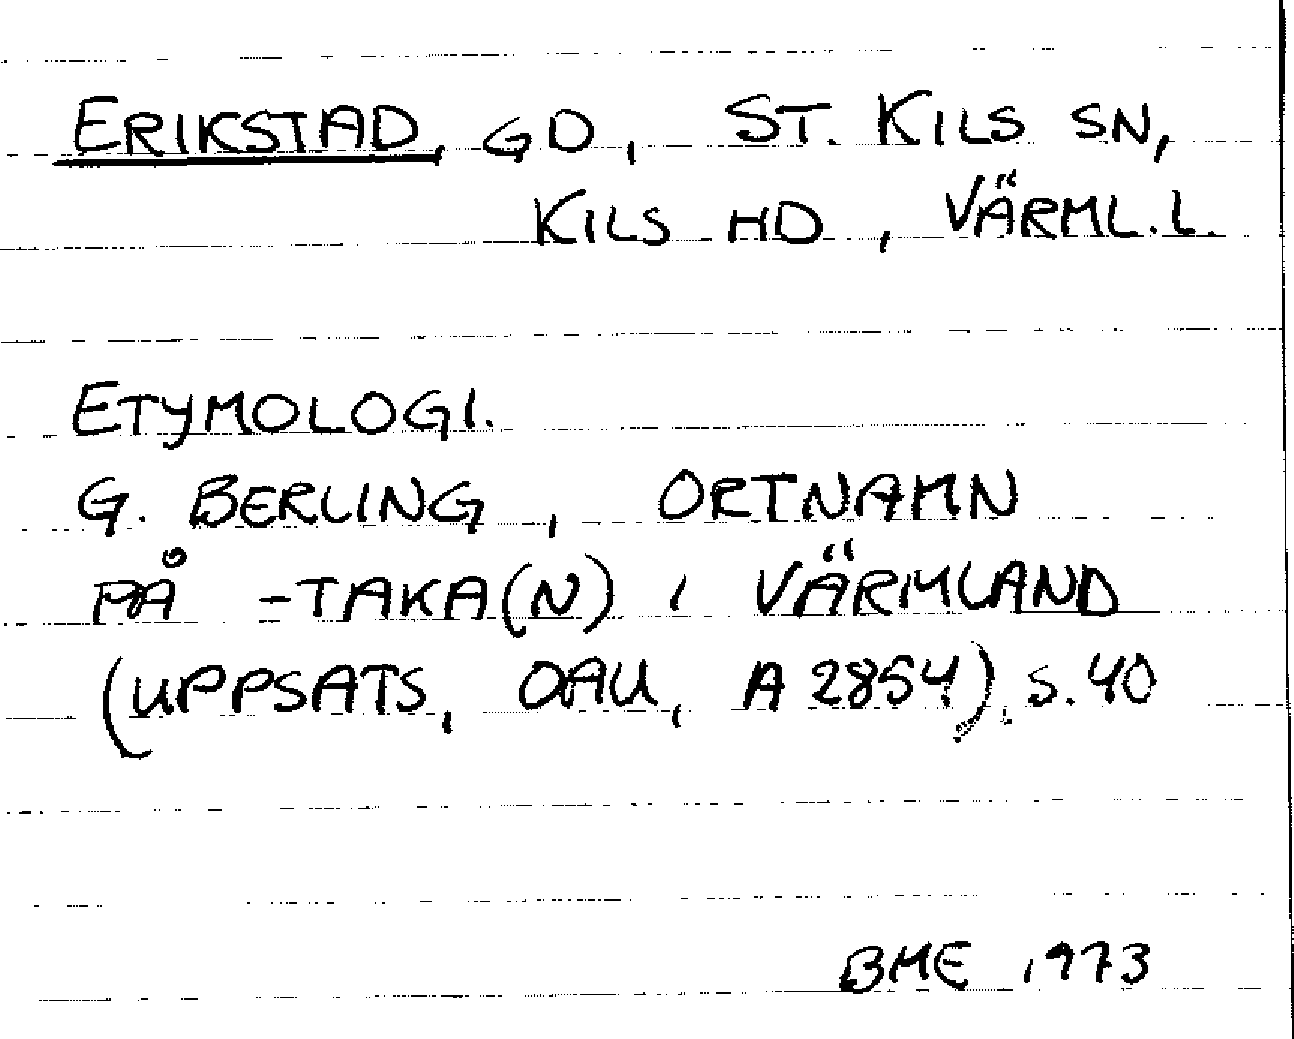 ERIKSTAD, GD, ST. KILS SN,
KILS HD, VÄRML. L.
ETYMOLOGI.
G. BERLING, ORTNAMN
PÅ -TAKA(N) I VÄRMLAND
(UPPSATS, OAU, A 2854), S. 40
BME 1973